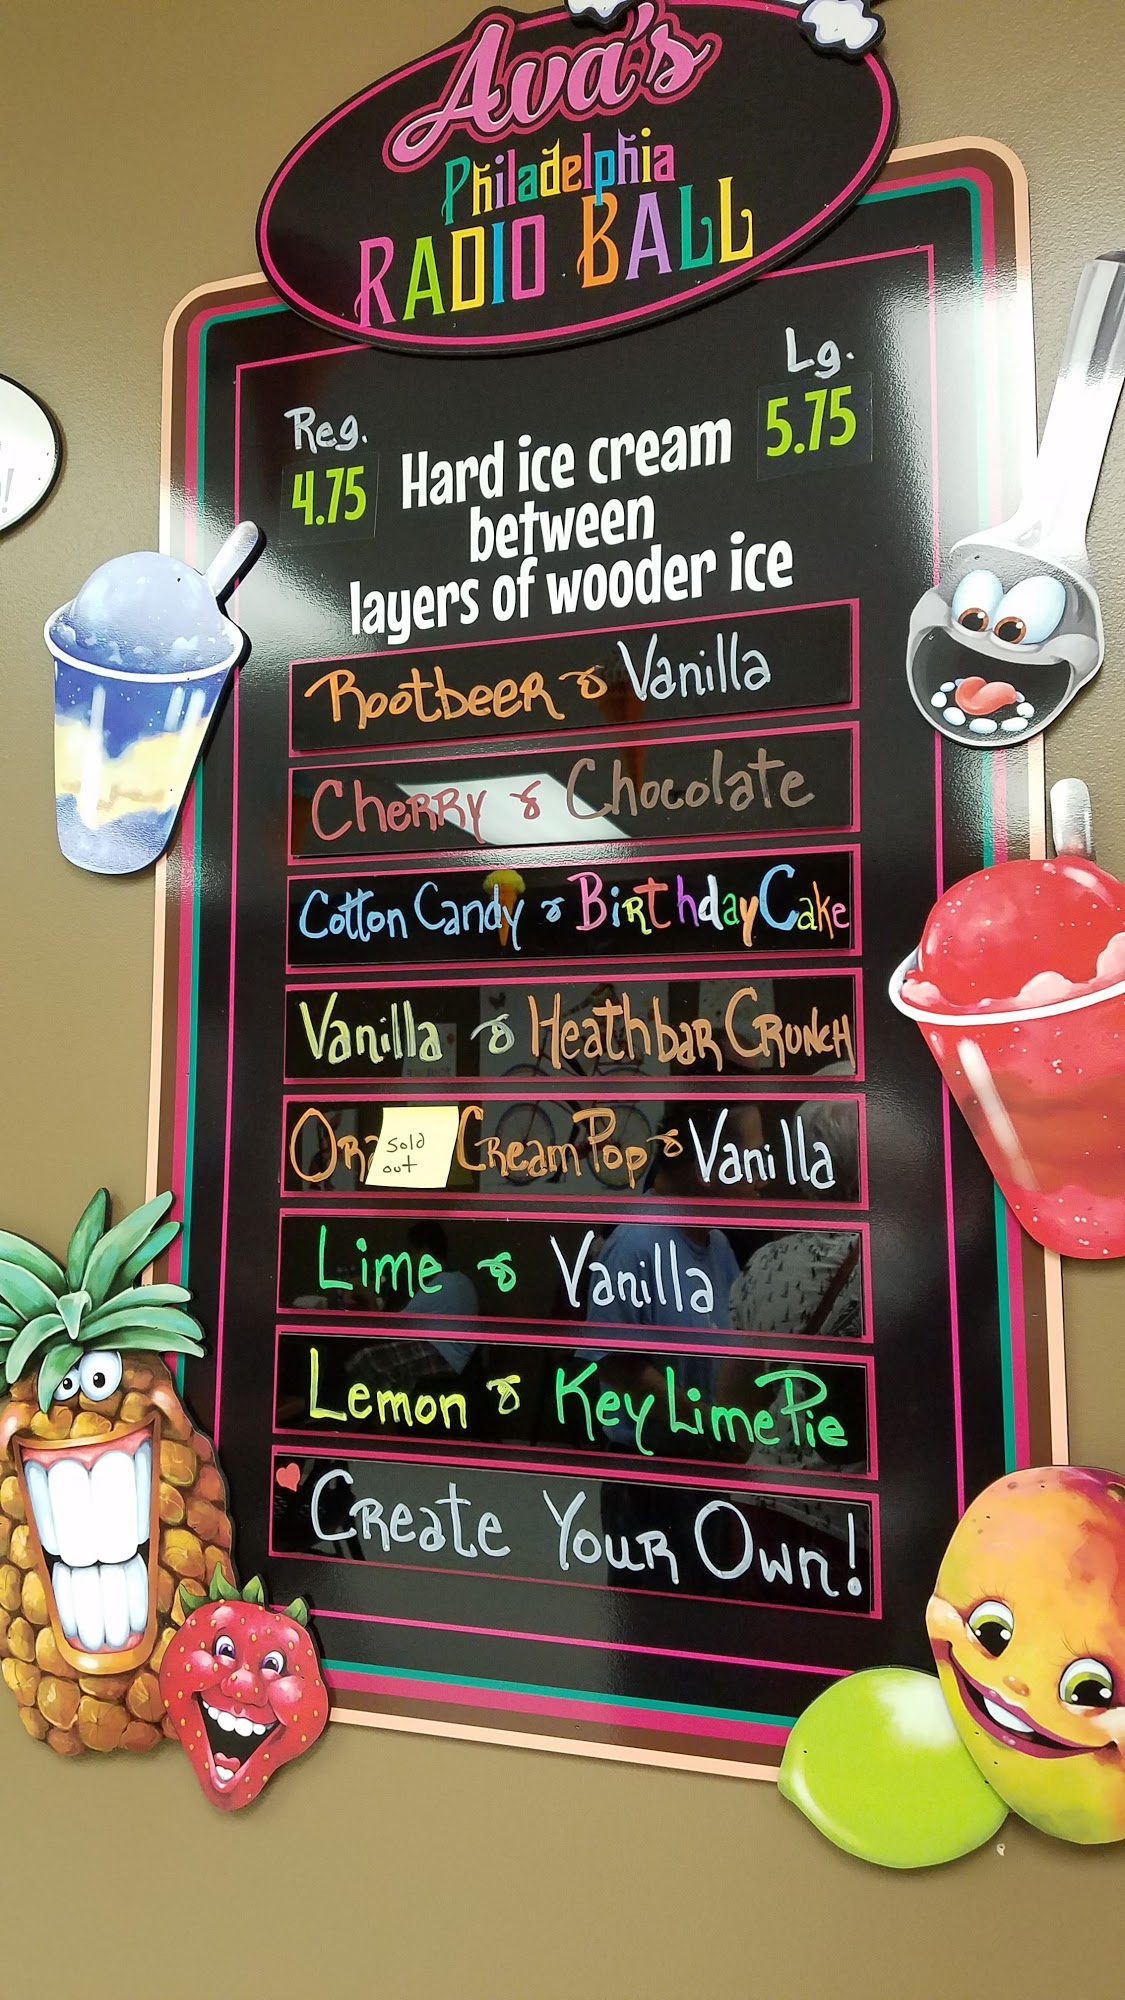 Ava's
Philadelphia
RADIO BALL
Reg.
4.75
Lg.
5.75
Hard ice cream
between
layers of wooder ice
Rootbeer & Vanilla
Cherry & Chocolate
Cotton Candy & Birthday Cake
Vanilla & Heathbar Crunch
Sold
out
Cream Pop & Vanilla
Lime & Vanilla
Lemon & Key Lime Pie
Create Your Own!